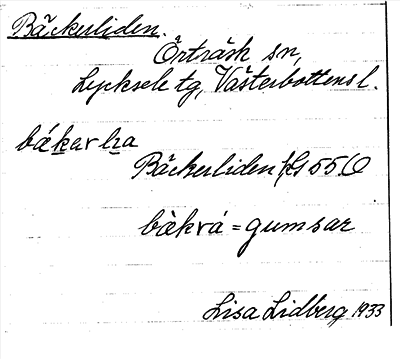 Bäckerliden.
Örträsk sn,
Lycksele tg, Västerbottens l.
Bäckerliden
bàkrá = gumsar
Lisa Lidberg 1933